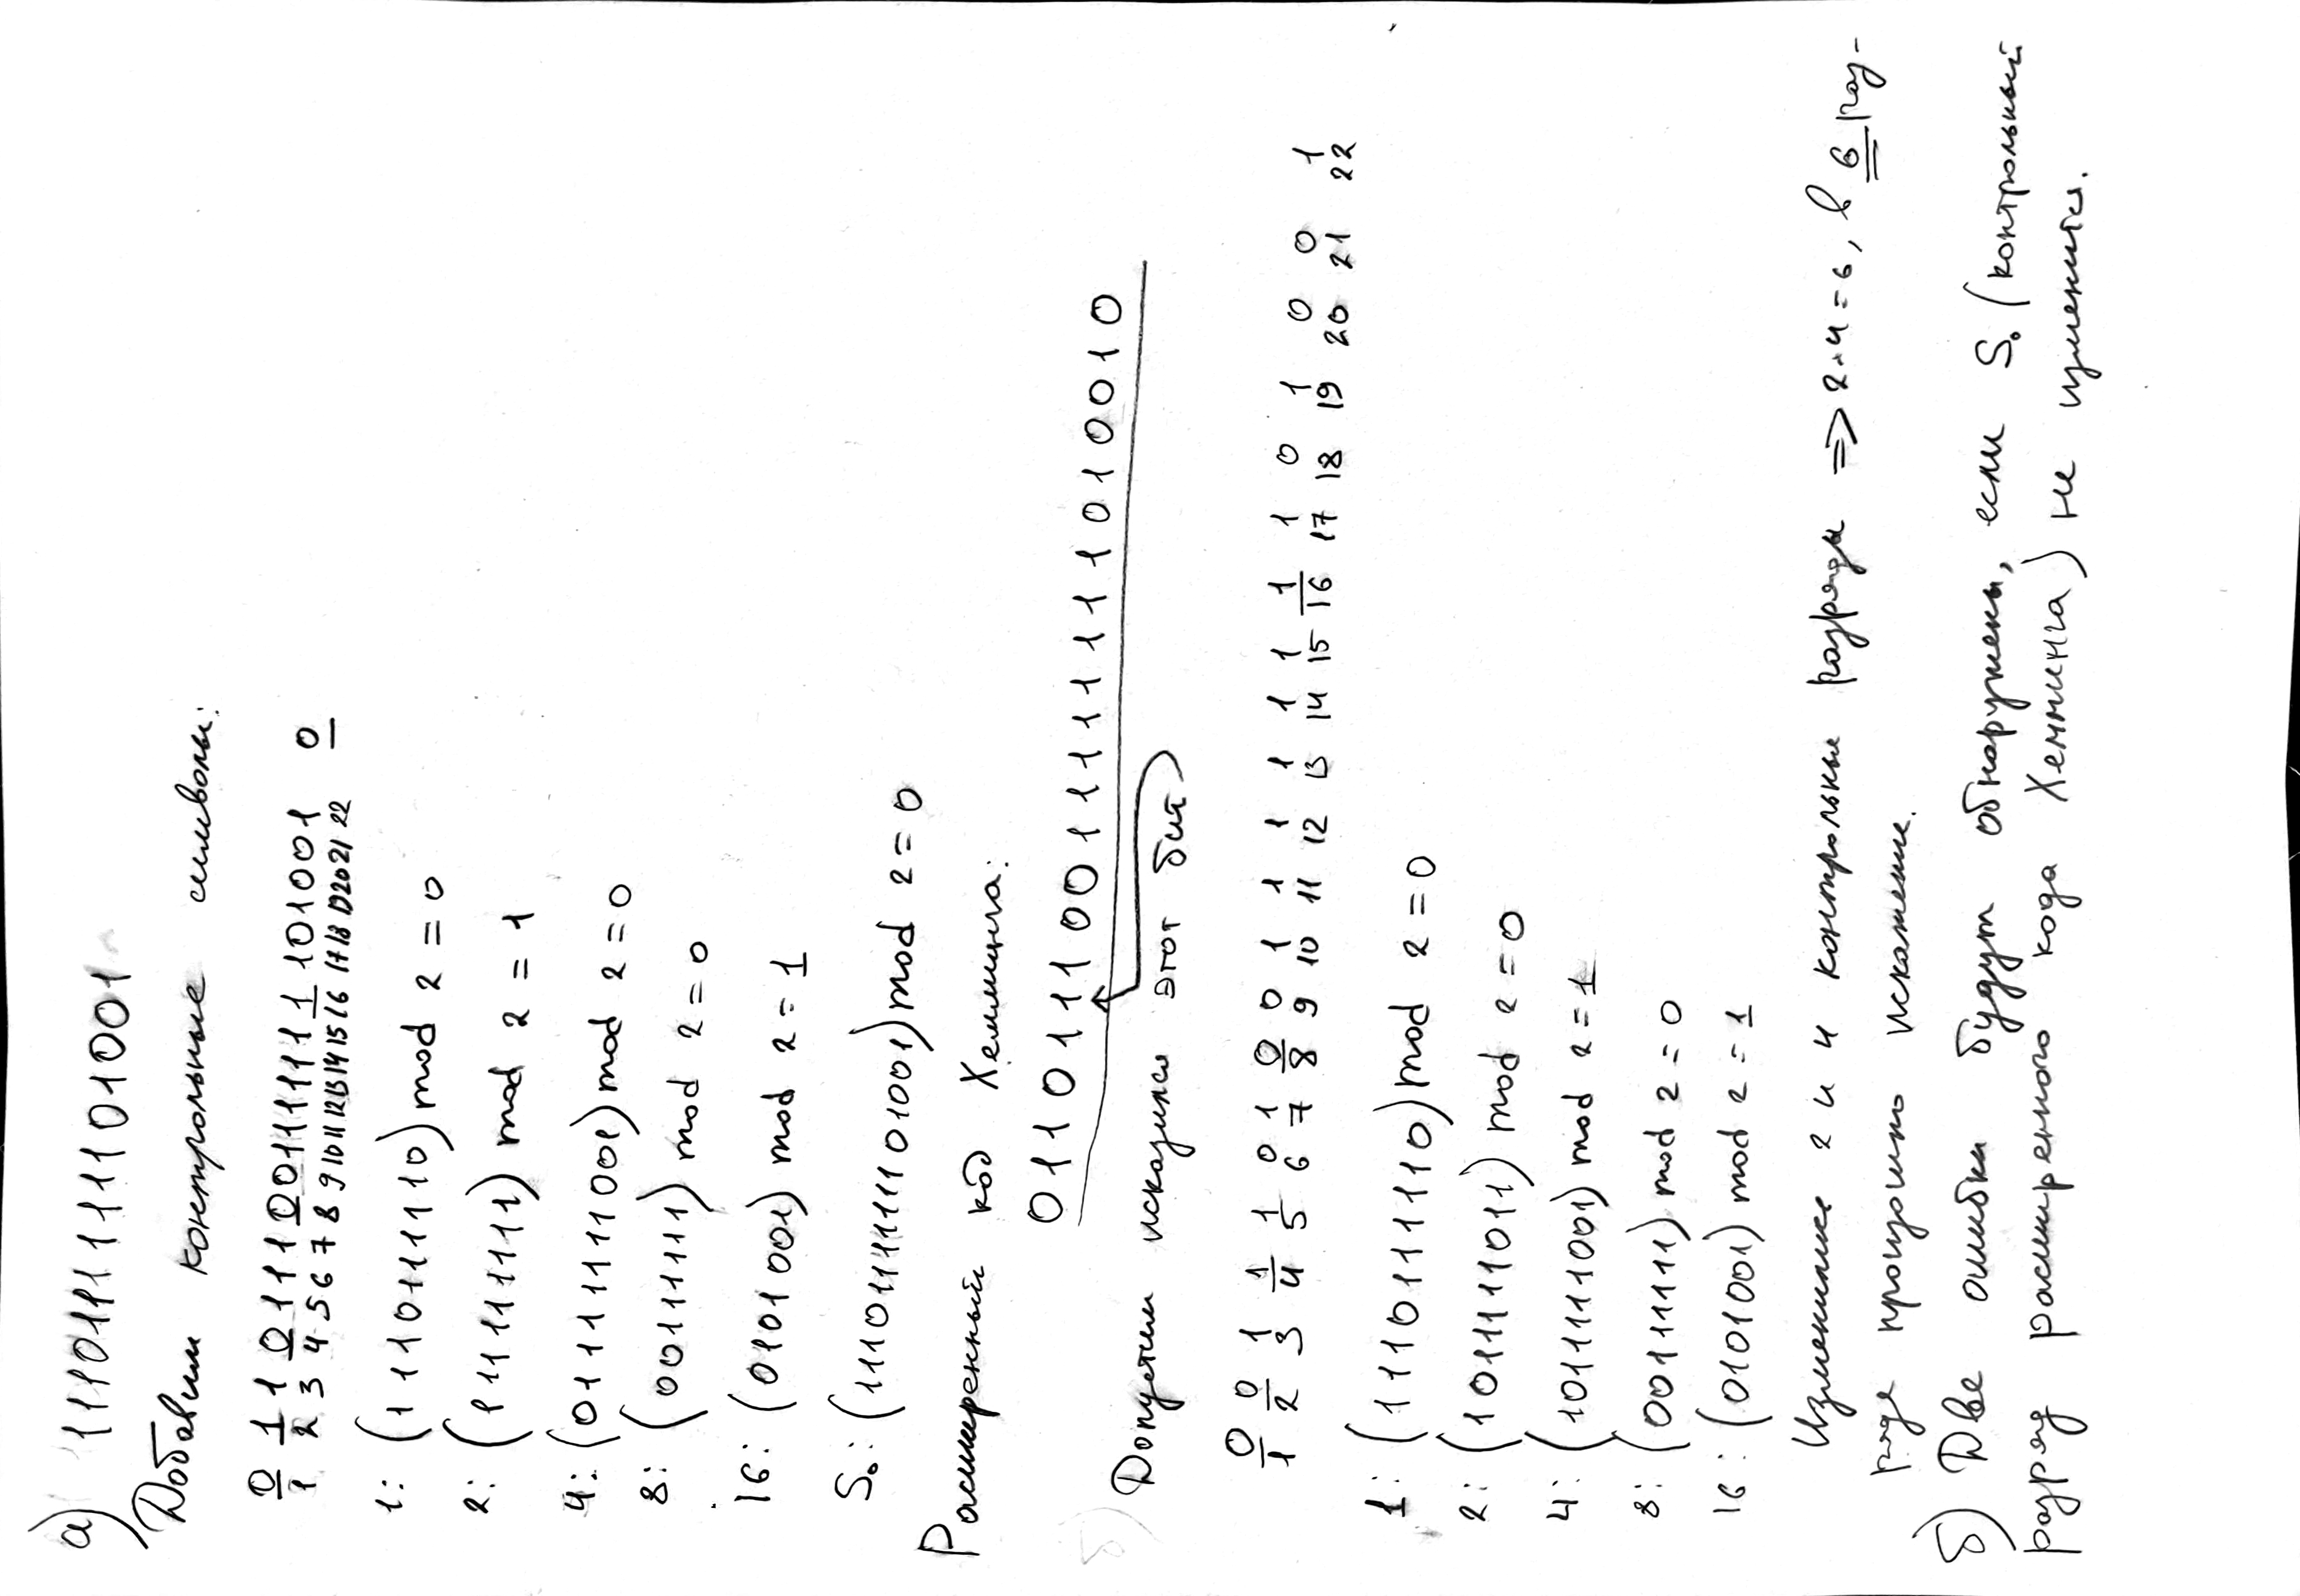 а) 11101111111101001
Добавим контрольные символы:
0 1 1 0 1 1 1 0 0 1 1 1 1 1 1 1 1 0 1 0 0 1 0
1 2 3 4 5 6 7 8 9 10 11 12 13 14 15 16 17 18 19 20 21 22
1: (1110111110) mod 2 = 0
2: (111111111) mod 2 = 1
4: (01111111001) mod 2 = 0
8: (00111111) mod 2 = 0
16: (0101001) mod 2 = 1
S₀: (11101111111101001) mod 2 = 0
Расширенный код Хемминга:
01101110011111111010010
Допустим исказился этот бит
0 0 1 1 1 0 1 0 0 1 1 1 1 1 1 1 1 0 1 0 0 1
1 2 3 4 5 6 7 8 9 10 11 12 13 14 15 16 17 18 19 20 21 22
1: (1110111110) mod 2 = 0
2: (1011111011) mod 2 = 0
4: (1011111001) mod 2 = 1
8: (00111111) mod 2 = 0
16: (0101001) mod 2 = 1
Изменились 2 и 4 контрольные разряды => 2+4=6, в 6 раз-
ряде произошло искажение.
б) Две ошибки будут обнаружены, если S₀ (контрольный
разряд расширенного кода Хемминга) не изменится.